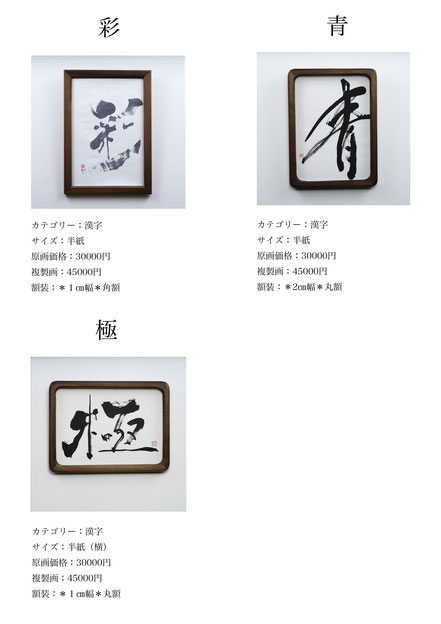 彩
彩
カテゴリー：漢字
サイズ：半紙
原画価格：30000円
複製画：45000円
額装：＊１㎝幅＊角額
青
青
カテゴリー：漢字
サイズ：半紙
原画価格：30000円
複製画：45000円
額装：＊2㎝幅＊丸額
極
極
カテゴリー：漢字
サイズ：半紙（横）
原画価格：30000円
複製画：45000円
額装：＊１㎝幅＊丸額